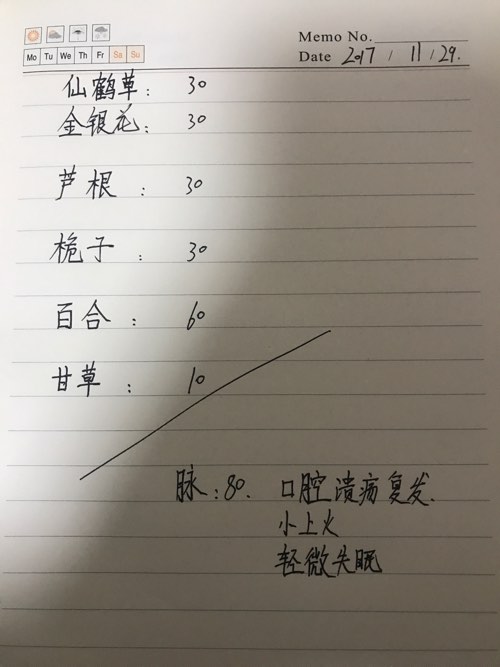 Memo No.
Mo Tu We Th Fr Sa Su
Date 2017 / 11 / 29.
仙鹤草: 30
金银花: 30
芦根: 30
桅子: 30
百合: 60
甘草: 10
脉:80. 口腔溃疡复发.
小上火
轻微失眠